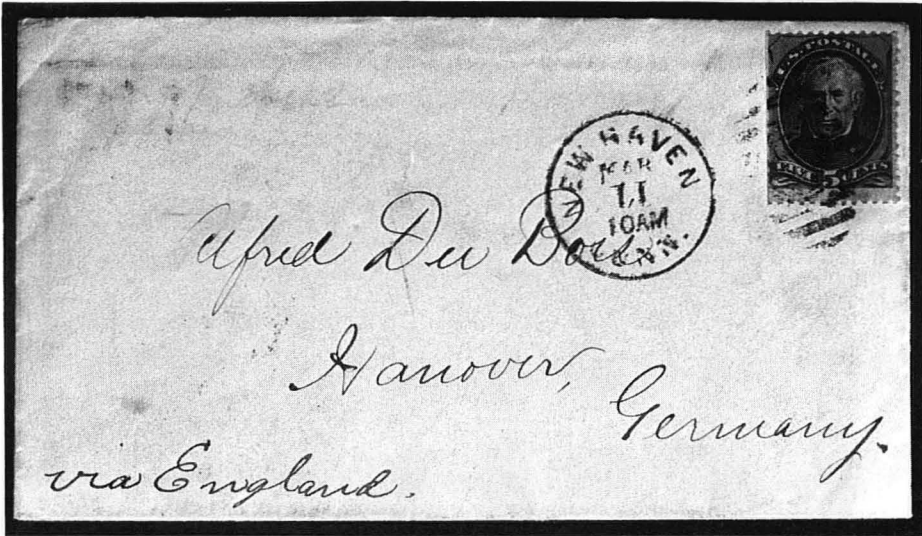 U.S. POSTAGE
FIVE 5 CENTS
NEW HAVEN
MAR
11
10AM
CONN.
Alfred Du Bois
Hanover,
Germany.
via England.